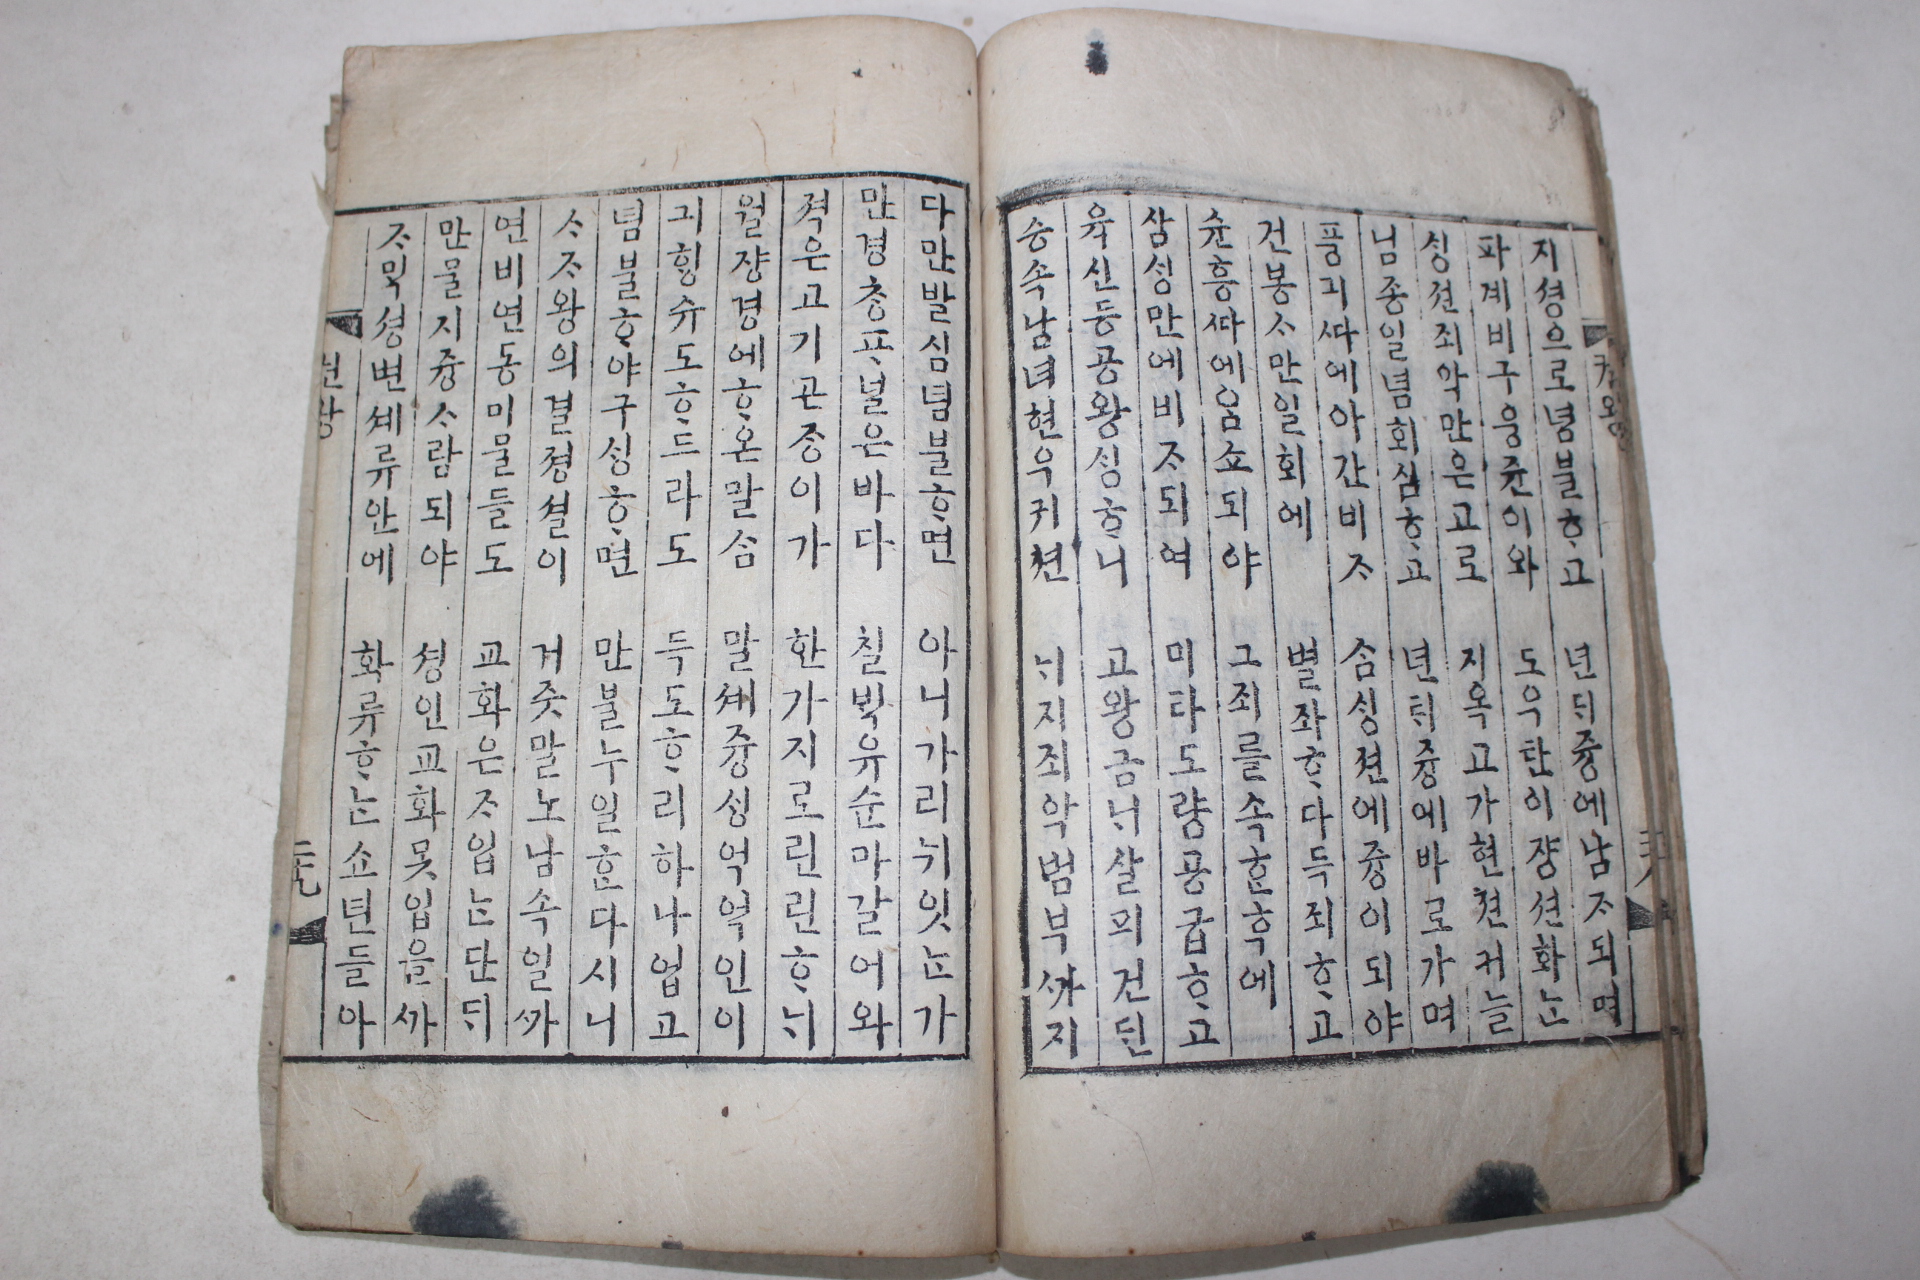 지셩으로념불ᄒᆞ고 년ᄃᆡ즁에남ᄌᆞ되며
파계비구웅쥰이와 도우탄이쟝션화ᄂᆞᆫ
싱젼죄악만은고로 지옥고가현젼커늘
님종일념회심ᄒᆞ고 년ᄃᆡ즁에바로가며
풍긔ᄯᅡ에아간비ᄌᆞ 삼싱젼에즁이되야
건봉ᄉᆞ만일회에 별좌ᄒᆞ다득죄ᄒᆞ고
슌흥ᄯᅡ에암쇼되야 그죄를속ᄒᆞᆫ후에
삼싱만에비ᄌᆞ되여 미타도량공급ᄒᆞ고
육신등공왕싱ᄒᆞ니 고왕금ᄂᆡ살피건ᄃᆡᆫ
승속남녀현우귀쳔 ᄂᆡ지죄악범부ᄭᅡ지
다만발심념불ᄒᆞ면 아니가리뉘잇ᄂᆞᆫ가
만경창파널은바다 칠ᄇᆡᆨ유순마갈어와
젹은고기곤ᄌᆞᆼ이가 한가지로린린ᄒᆞᄂᆡ
월쟝경에ᄒᆞ온말ᄉᆞᆷ 말셰즁싱억억인이
긔ᄒᆡᆼ슈도ᄒᆞ드라도 득도ᄒᆞ리하나업고
념불ᄒᆞ야구싱ᄒᆞ면 만불누일ᄒᆞᆫ다시니
ᄉᆞᄌᆞ왕의결졍셜이 거즛말노남속일ᄭᅡ
연비연동미물들도 교화은ᄌᆞ입ᄂᆞᆫ단ᄃᆡ
만물지즁ᄉᆞ람되야 셩인교화못입을ᄭᅡ
ᄌᆞᄆᆡᆨ셩변셰류안에 화류ᄒᆞᄂᆞᆫ쇼년들아